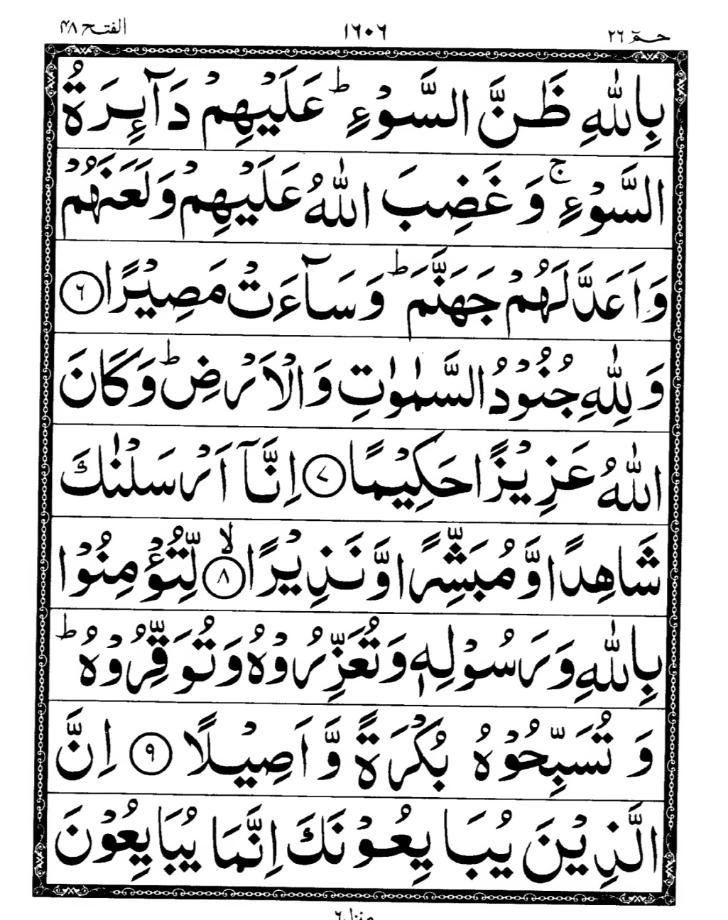 حٰمٓ ٢٦ ١٦٠٦ الفتح ٤٨
بِاللّٰهِ ظَنَّ السَّوْءِ ؕ عَلَيْهِمْ دَآئِرَةُ
السَّوْءِ ۚ وَ غَضِبَ اللّٰهُ عَلَيْهِمْ وَ لَعَنَهُمْ
وَ اَعَدَّ لَهُمْ جَهَنَّمَ ؕ وَ سَآءَتْ مَصِيْرًا ۝٦
وَ لِلّٰهِ جُنُوْدُ السَّمٰوٰتِ وَ الْاَرْضِ ؕ وَ كَانَ
اللّٰهُ عَزِيْزًا حَكِيْمًا ۝٧ اِنَّاۤ اَرْسَلْنٰكَ
شَاهِدًا وَّ مُبَشِّرًا وَّ نَذِيْرًا ۝٨ۙ لِّتُؤْمِنُوْا
بِاللّٰهِ وَ رَسُوْلِهٖ وَ تُعَزِّرُوْهُ وَ تُوَقِّرُوْهُ ؕ
وَ تُسَبِّحُوْهُ بُكْرَةً وَّ اَصِيْلًا ۝٩ اِنَّ
الَّذِيْنَ يُبَايِعُوْنَكَ اِنَّمَا يُبَايِعُوْنَ
منزل ٦